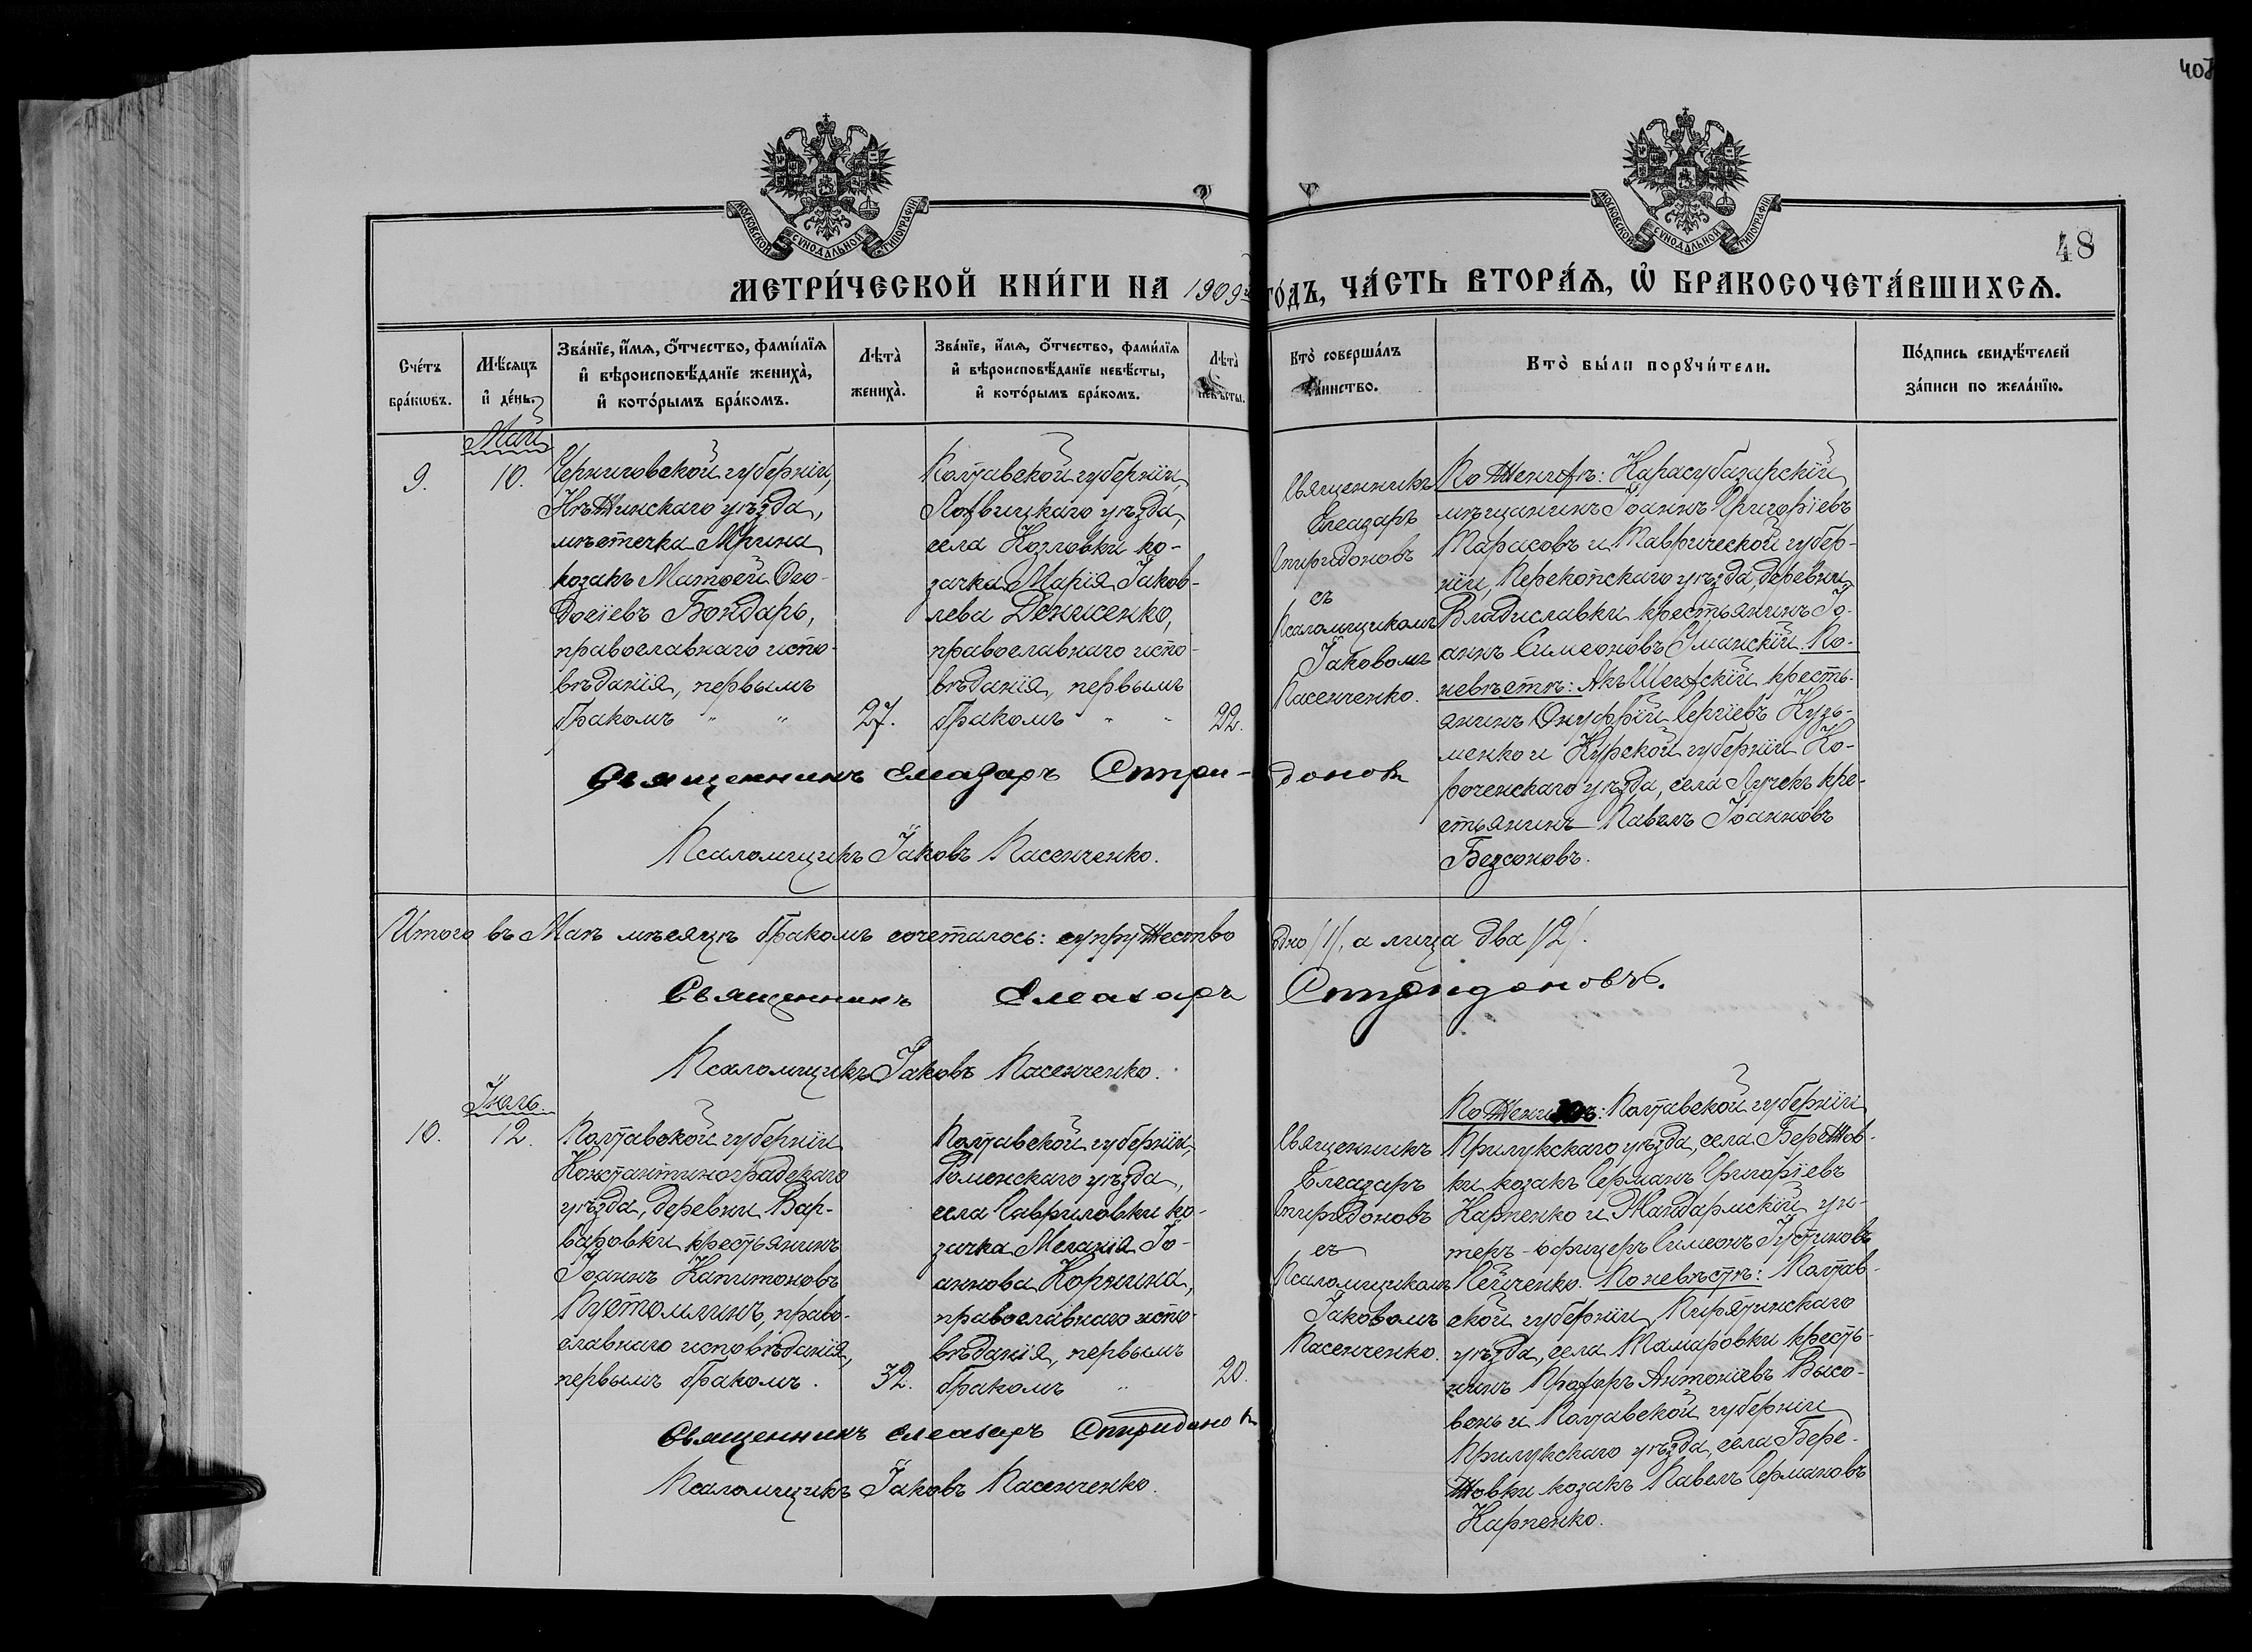 408
МОСКОВСКОЙ СУНОДАЛЬНОЙ ТИПОГРАФІИ
МОСКОВСКОЙ СУНОДАЛЬНОЙ ТИПОГРАФІИ
48
МЕТРИ́ЧЕСКОЙ КНИ́ГИ НА 1909й ГО́ДЪ, ЧА́СТЬ ВТОРА́Ѧ, Ѽ БРАКОСОЧЕТА́ВШИХСѦ.
Сче́тъ
бра́кѡвъ.
Мѣ́сяцъ
и҆ де́нь.
Зва́нїе, и҆́мѧ, ѻ҆́тчество, фами́лїѧ
и҆ вѣроисповѣ́данїе жениха̀,
и҆ кото́рымъ бра́комъ.
Лѣта̀
жениха̀.
Зва́нїе, и҆́мѧ, ѻ҆́тчество, фами́лїѧ
и҆ вѣроисповѣ́данїе невѣ́сты,
и҆ кото́рымъ бра́комъ.
Лѣта̀
невѣ́сты.
Кто̀ соверша́лъ
та́инство.
Кто̀ бы́ли порꙋчи́тели.
По́дпись свидѣ́телей
за́писи по жела́нїю.
Май
9.
10.
Черниговской губерніи,
Нѣжинскаго уѣзда,
мѣстечка Мрина
козакъ Матѳей Ѳео-
досіевъ Бондарь,
православнаго испо-
вѣданія, первымъ
бракомъ " "
27.
Полтавской губерніи,
Лохвицкаго уѣзда,
села Козловки ко-
зачка Марія Іаков-
лева Денисенко,
православнаго испо-
вѣданія, первымъ
бракомъ " "
22.
Священникъ
Елеазаръ
Спиридоновъ
съ
Псаломщикомъ
Іаковомъ
Пасенченко.
По женихѣ: Карасубазарскій
мѣщанинъ Іоаннъ Григоріевъ
Тарасовъ и Таврической губер-
ніи, Перекопскаго уѣзда, деревни
Владиславки крестьянинъ Іо-
аннъ Симеоновъ Уманскій. По
невѣстѣ: Акъ-Шеихскій кресть-
янинъ Онуфрій Сергіевъ Кузь-
менко и Курской губерніи Ко-
роченскаго уѣзда, села Лучекъ кре-
стьянинъ Павелъ Іоанновъ
Безсоновъ.
Священникъ Елеазаръ Спиридоновъ
Псаломщикъ Іаковъ Пасенченко.
Итого въ Маѣ мѣсяцѣ бракомъ сочеталось: супружество одно /1/, а лица два /2/.
Священникъ Елеазаръ Спиридоновъ.
Псаломщикъ Іаковъ Пасенченко.
Іюль.
10.
12.
Полтавской губерніи
Константиноградскаго
уѣзда, деревни Вар-
варовки крестьянинъ
Іоаннъ Капитоновъ
Пустомлинъ, право-
славнаго исповѣданія,
первымъ бракомъ.
32.
Полтавской губерніи,
Роменскаго уѣзда,
села Гавриловки ко-
зачка Меланія Іо-
аннова Коржина,
православнаго испо-
вѣданія, первымъ
бракомъ "
20.
Священникъ
Елеазаръ
Спиридоновъ
съ
Псаломщикомъ
Іаковомъ
Пасенченко.
По женихѣ: Полтавской губерніи
Прилукскаго уѣзда, села Бережов-
ки козакъ Германъ Григоріевъ
Карпенко и Жандармскій ун-
теръ-офицеръ Симеонъ Іустиновъ
По невѣстѣ: Полтав-
ской губерніи, Пирятинскаго
уѣзда, села Тамаровки кресть-
нинъ Прохоръ Антоніевъ Высо-
вень и Полтавской губерніи
Прилукскаго уѣзда, села Бере-
жовки козакъ Павелъ Германовъ
Карпенко.
Священникъ Елеазаръ Спиридоновъ
Псаломщикъ Іаковъ Пасенченко.